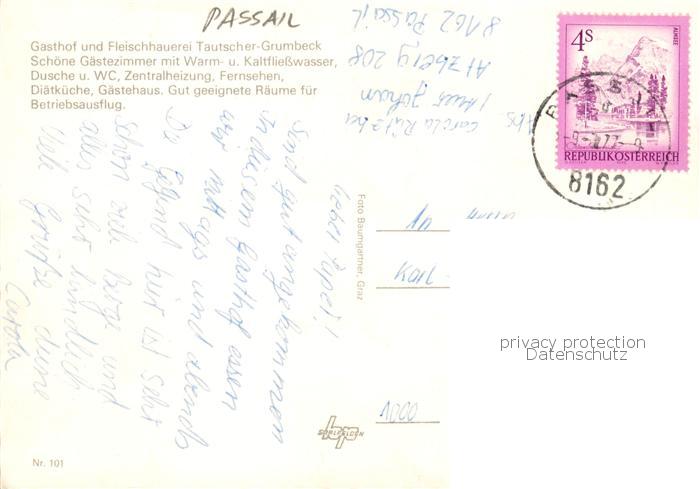 PASSAIL
Gasthof und Fleischhauerei Tautscher-Grumbeck
Schöne Gästezimmer mit Warm- u. Kaltfließwasser,
Dusche u. WC, Zentralheizung, Fernsehen,
Diätküche, Gästehaus. Gut geeignete Räume für
Betriebsausflug.
Abs. Carola
Johann
Atzberg 208
8162 Passail
4S
ALMSEE
REPUBLIK ÖSTERREICH
8162
Sind gut angekommen
in diesem Gasthof essen
wir mittags und abends
Die Gegend hier ist sehr
schön viele Berge und
alles sehr ländlich
Viele Grüße deine
Carola
Foto Baumgartner, Graz
1000
privacy protection
Datenschutz
Nr. 101